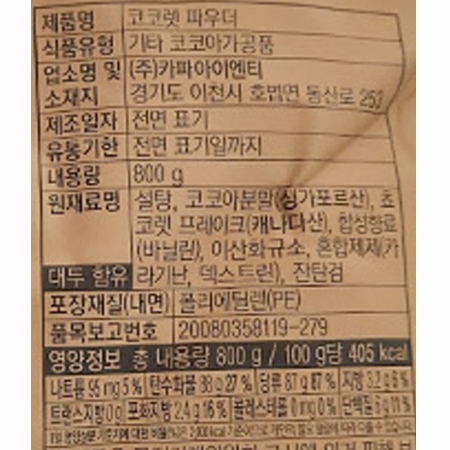 제품명 코코렛 파우더
식품유형 기타 코코아가공품
업소명 및 (주)카파아이엔티
소재지 경기도 이천시 호법면 동산로 253
제조일자 전면 표기
유통기한 전면 표기일까지
내용량 800 g
원재료명 설탕, 코코아분말(싱가포르산), 쵸
코렛 프레이크(캐나다산), 합성향료
(바닐린), 이산화규소, 혼합제제(카
대두 함유 라기난, 덱스트린), 잔탄검
포장재질(내면) 폴리에틸렌(PE)
품목보고번호 20080358119-279
영양정보 총 내용량 800 g / 100 g당 405 kcal
나트륨 95 mg 5 % 탄수화물 88 g 27 % 당류 87 g 87 % 지방 3.2 g 6 %
트랜스지방 0 g 포화지방 2.4 g 16 % 콜레스테롤 0 mg 0 % 단백질 6 g 11 %
1일 영양성분 기준치에 대한 비율(%)은 2,000 kcal 기준이므로 개인의 필요 열량에 따라 다를 수 있습니다.